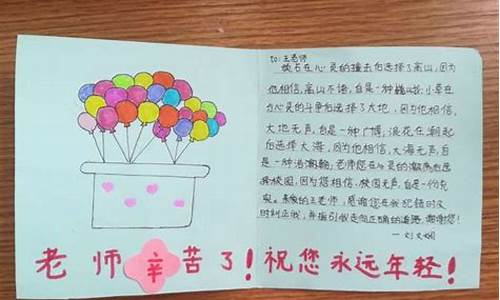 to:王老师
岩石在心灵的撞击后选择了高山,因为
他相信,高山不语,自是一种巍峨;小草在
心灵的斗争后选择了大地,因为他相信,
大地无声,自是一种广博;浪花在潮起
后选择大海,因为他相信,大海无声,自
是一种浩瀚;老师您在心灵的澈荡后选
择校园,因为您相信,校园无声,自是一份充
实。亲爱的王老师,感谢您在我犯错时及
时纠正我,并指引我走向正确的道路,谢谢您!
老师辛苦了!祝您永远年轻!